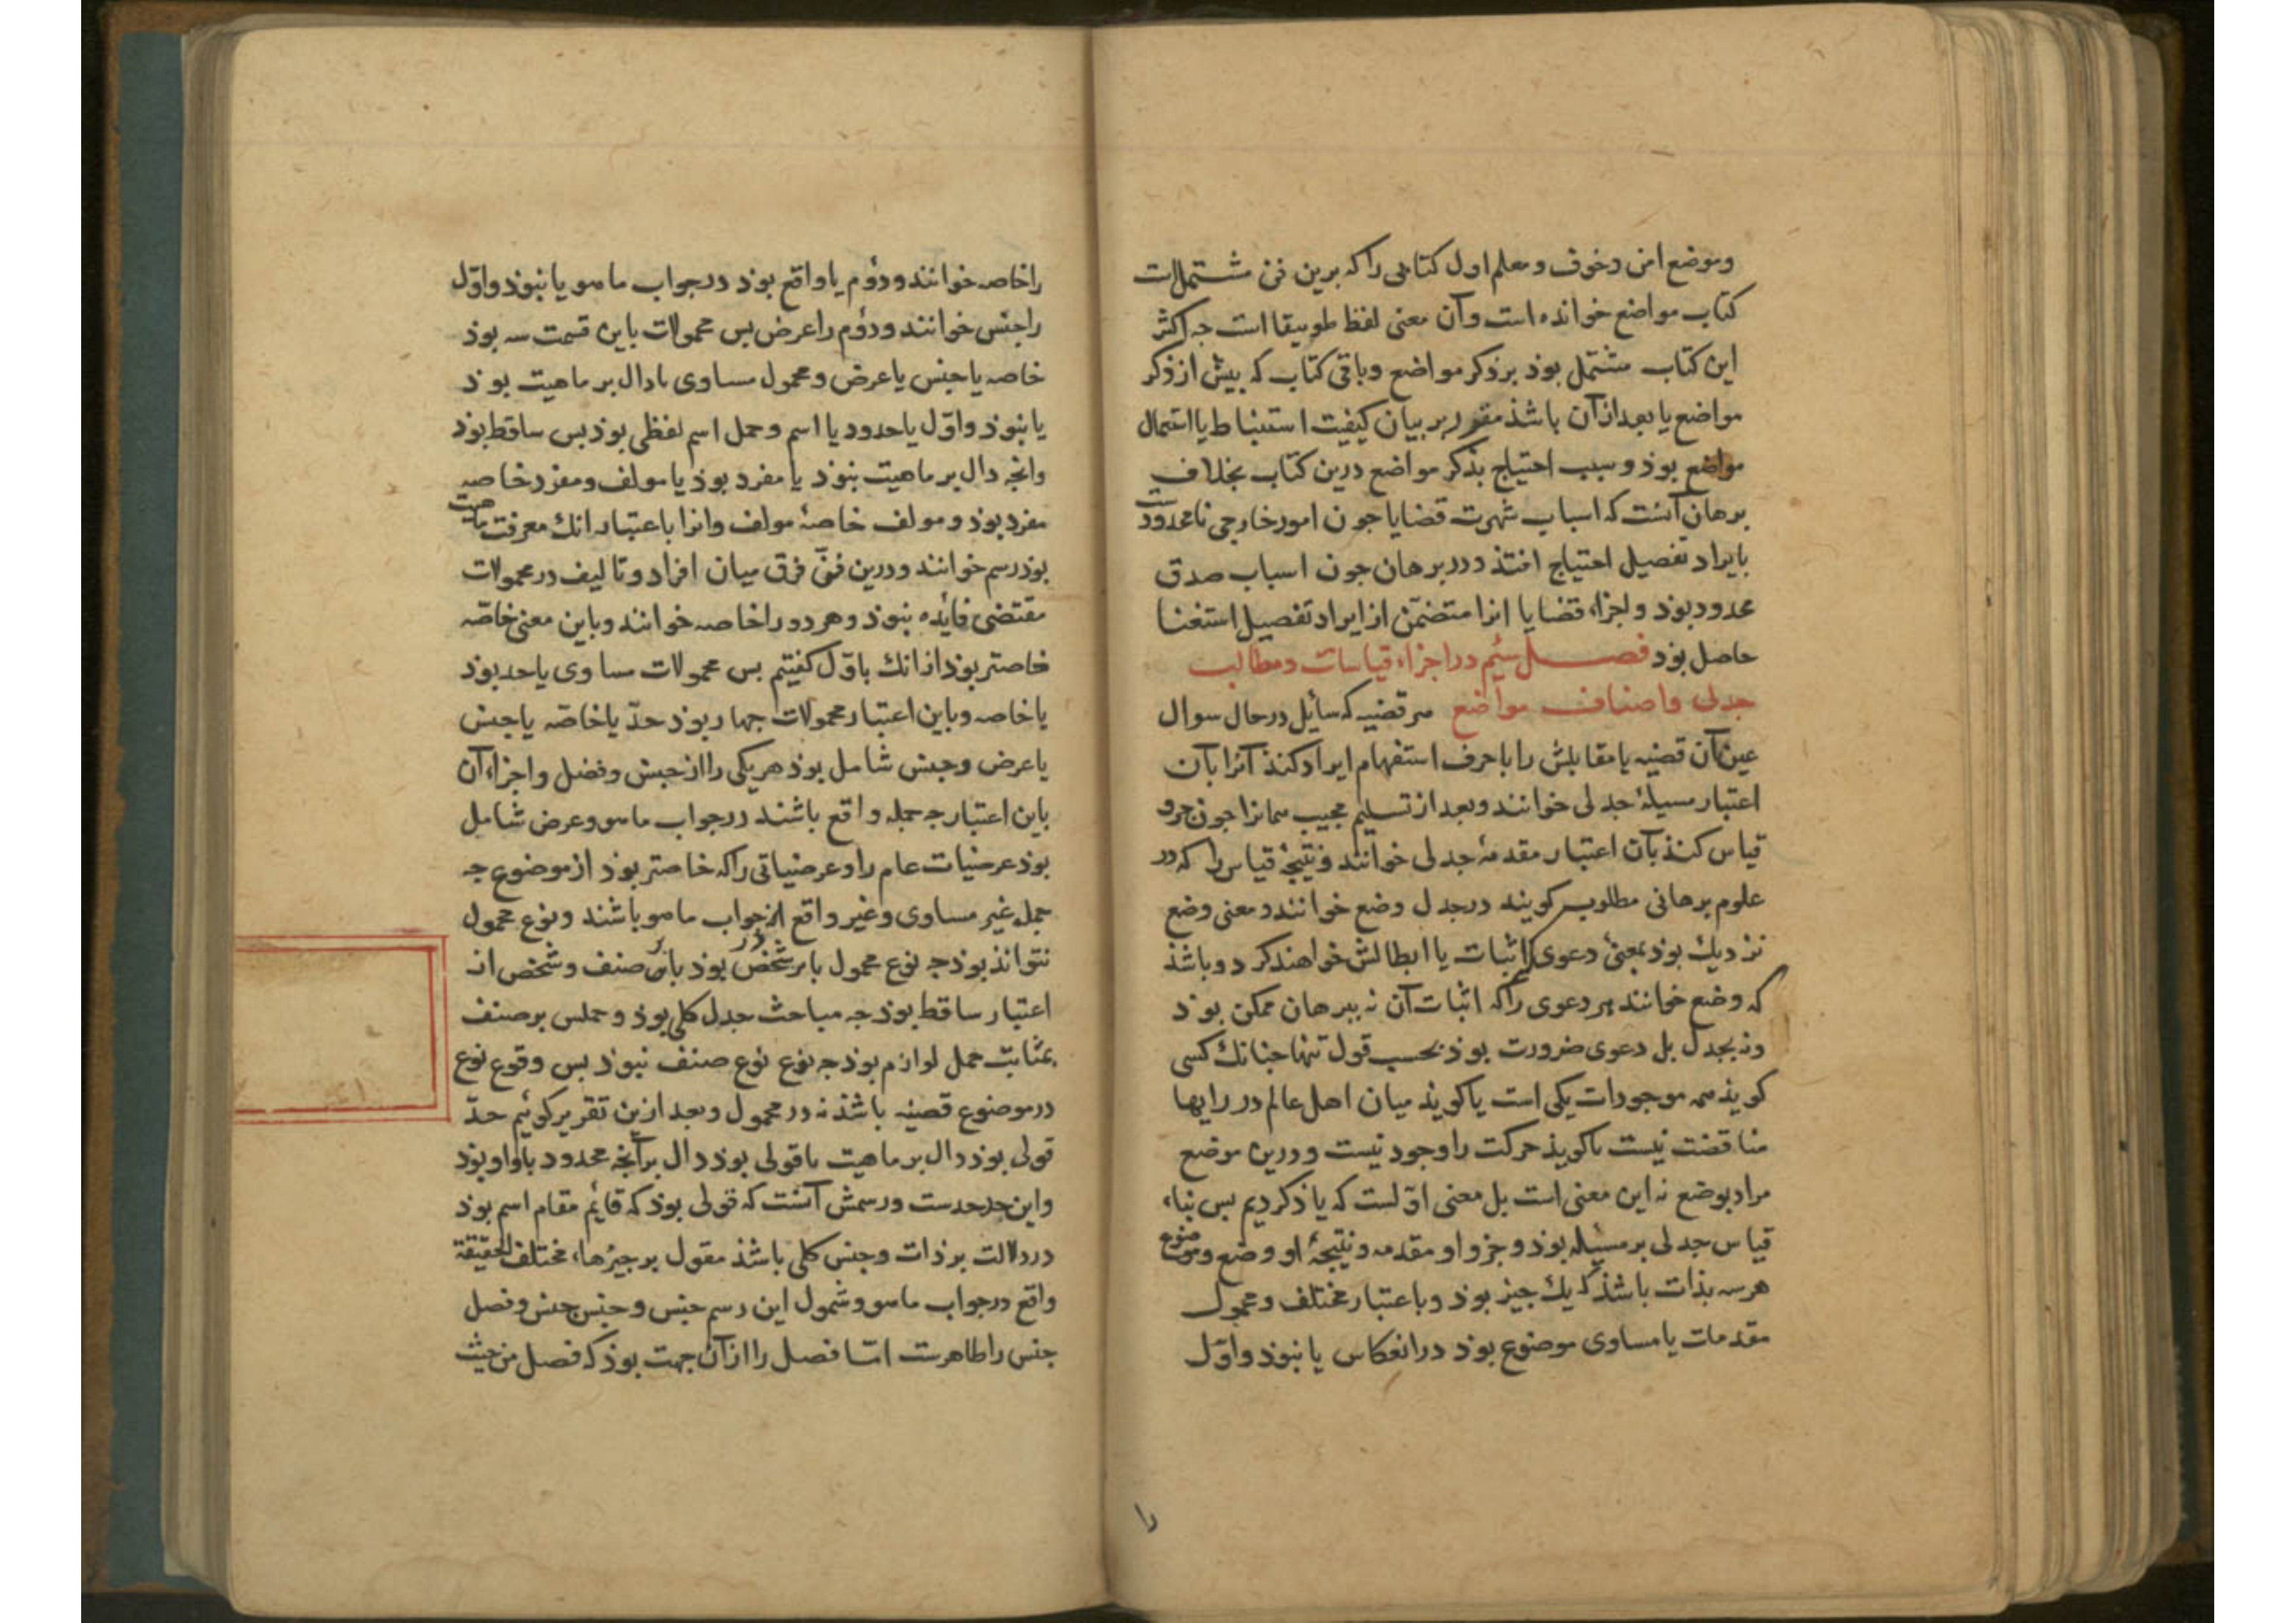 وموضع امن وخوف ومعلم اول كتابی را که برین فن مشتملات
کتاب مواضع خوانده است وآن معنی لفظ طوبیقا است جه اکثر
این کتاب مشتمل بوذ بر ذکر مواضع وباقی کتاب که بیش از ذکر
مواضع یا بعد از آن باشذ مقرر بر بیان کیفیت استنباط یا استعمال
مواضع بوذ وسبب احتیاج بذکر مواضع درین کتاب بخلاف
برهان آنست که اسباب شهرت قضایا جون امور خارجی نامحدودست
بایراد تفصیل احتیاج افتذ ودر برهان جون اسباب صدق
محدود بوذ واجزاء قضایا انرا متضمّن از ایراد تفصیل استغنا
حاصل بوذ فصل سیُم در اجزاء قیاسات ومطالب
جدلی واصناف مواضع هر قضیه که سائل در حال سوال
عین آن قضیه یا مقابلش را با حرف استفهام ایراد کنذ آنرا بآن
اعتبار مسیلهٔ جدلی خوانند وبعد از تسلیم مجیب همانرا جون جزو
قیاس کنذ بآن اعتبار مقدمهٔ جدلی خوانند ونتیجهٔ قیاس را که در
علوم برهانی مطلوب کویند در جدل وضع خوانند ومعنی وضع
نزدیك بوذ بمعنیٔ دعوی که اثبات یا ابطالش خواهند کرد وباشذ
که وضع خوانند هر دعوی را که اثبات آن نه ببرهان ممکن بوذ
ونه بجدل بل دعوی ضرورت بوذ بحسب قول تنها جنانك کسی
کویذ همه موجودات یکی است یا کویذ میان اهل عالم در رایها
مناقضت نیست یا کویذ حرکت را وجود نیست ودرین موضع
مراد بوضع نه این معنی است بل معنی اوّلست که یاذ کردیم بس بناء
قیاس جدلی بر مسیله بوذ وجزو او مقدمه ونتیجهٔ او وضع وموضوع
هر سه بذات باشذ که یك جیز بوذ وباعتبار مختلف ومحمول
مقدمات یا مساوی موضوع بوذ در انعکاس یا نبوذ واوّل
را
را خاصه خوانند ودوُم یا واقع بوذ در جواب ما هو یا نبوذ واوّل
را جنس خوانند ودوُم را عرض بس محمولات باین قسمت سه بوذ
خاصه یا جنس یا عرض ومحمول مساوی یا دال بر ماهیت بوذ
یا نبوذ واوّل یا حدود یا اسم وحمل اسم لفظی بوذ بس ساقط بوذ
وانجه دال بر ماهیت نبوذ یا مفرد بوذ یا مولف ومفرد خاصه
مفرد بوذ ومولف خاصهٔ مولف وانرا باعتبار انك معرفت ماهیت
بوذ رسم خوانند ودرین فنّ فرق میان افراد وتالیف در محمولات
مقتضی فائده نبوذ وهر دو را خاصه خوانند وباین معنی خاصّه
خاصتر بوذ از انك باوّل کفتیم بس محمولات مساوی یا حد بوذ
یا خاصه وباین اعتبار محمولات جهار بوذ حدّ یا خاصّه یا جنس
یا عرض وجنس شامل بوذ هر یکی را از جنس وفصل واجزاء آن
باین اعتبار جه جمله واقع باشند در جواب ما هو وعرض شامل
بوذ عرضیات عام را وعرضیاتی را که خاصتر بوذ از موضوع جه
جمله غیر مساوی وغیر واقع در جواب ما هو باشند ونوع محمول
نتواند بوذ جه نوع محمول یا بر شخص بوذ یا بر صنف وشخص از
اعتبار ساقط بوذ جه مباحث جدل کلی بوذ وحملس بر صنف
بمثابت حمل لوازم بوذ جه نوع نوع صنف نبوذ بس وقوع نوع
در موضوع قضیه باشذ نه در محمول وبعد ازین تقریر کوئیم حدّ
قولی بوذ دال بر ماهیت یا قولی بوذ دال بر آنجه محدود باو او بوذ
واین حد حدست ورسمش آنست که قولی بوذ که قایُم مقام اسم بوذ
در دلالت بر ذات وجنس کلی باشذ مقول بر جیزها، مختلف الحقیقة
واقع در جواب ما هو وشمول این رسم جنس وجنس جنس وفصل
جنس را ظاهرست امّا فصل را از آن جهت بوذ که فصل من حیث